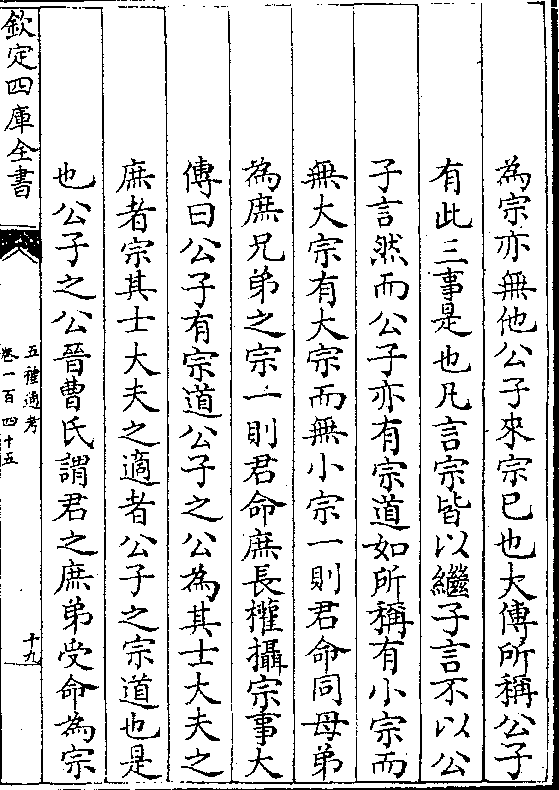 為宗亦無他公子來宗已也大傳所稱公子
有此三事是也凡言宗皆以繼子言不以公
子言然而公子亦有宗道如所稱有小宗而
無大宗有大宗而無小宗一則君命同母弟
為庶兄弟之宗一則君命庶長權攝宗事大
傳曰公子有宗道公子之公為其士大夫之
庶者宗其士大夫之適者公子之宗道也是
也公子之公晉曹氏謂君之庶弟受命為宗
欽定四庫全書
五禮通考
卷一百四十五
十九